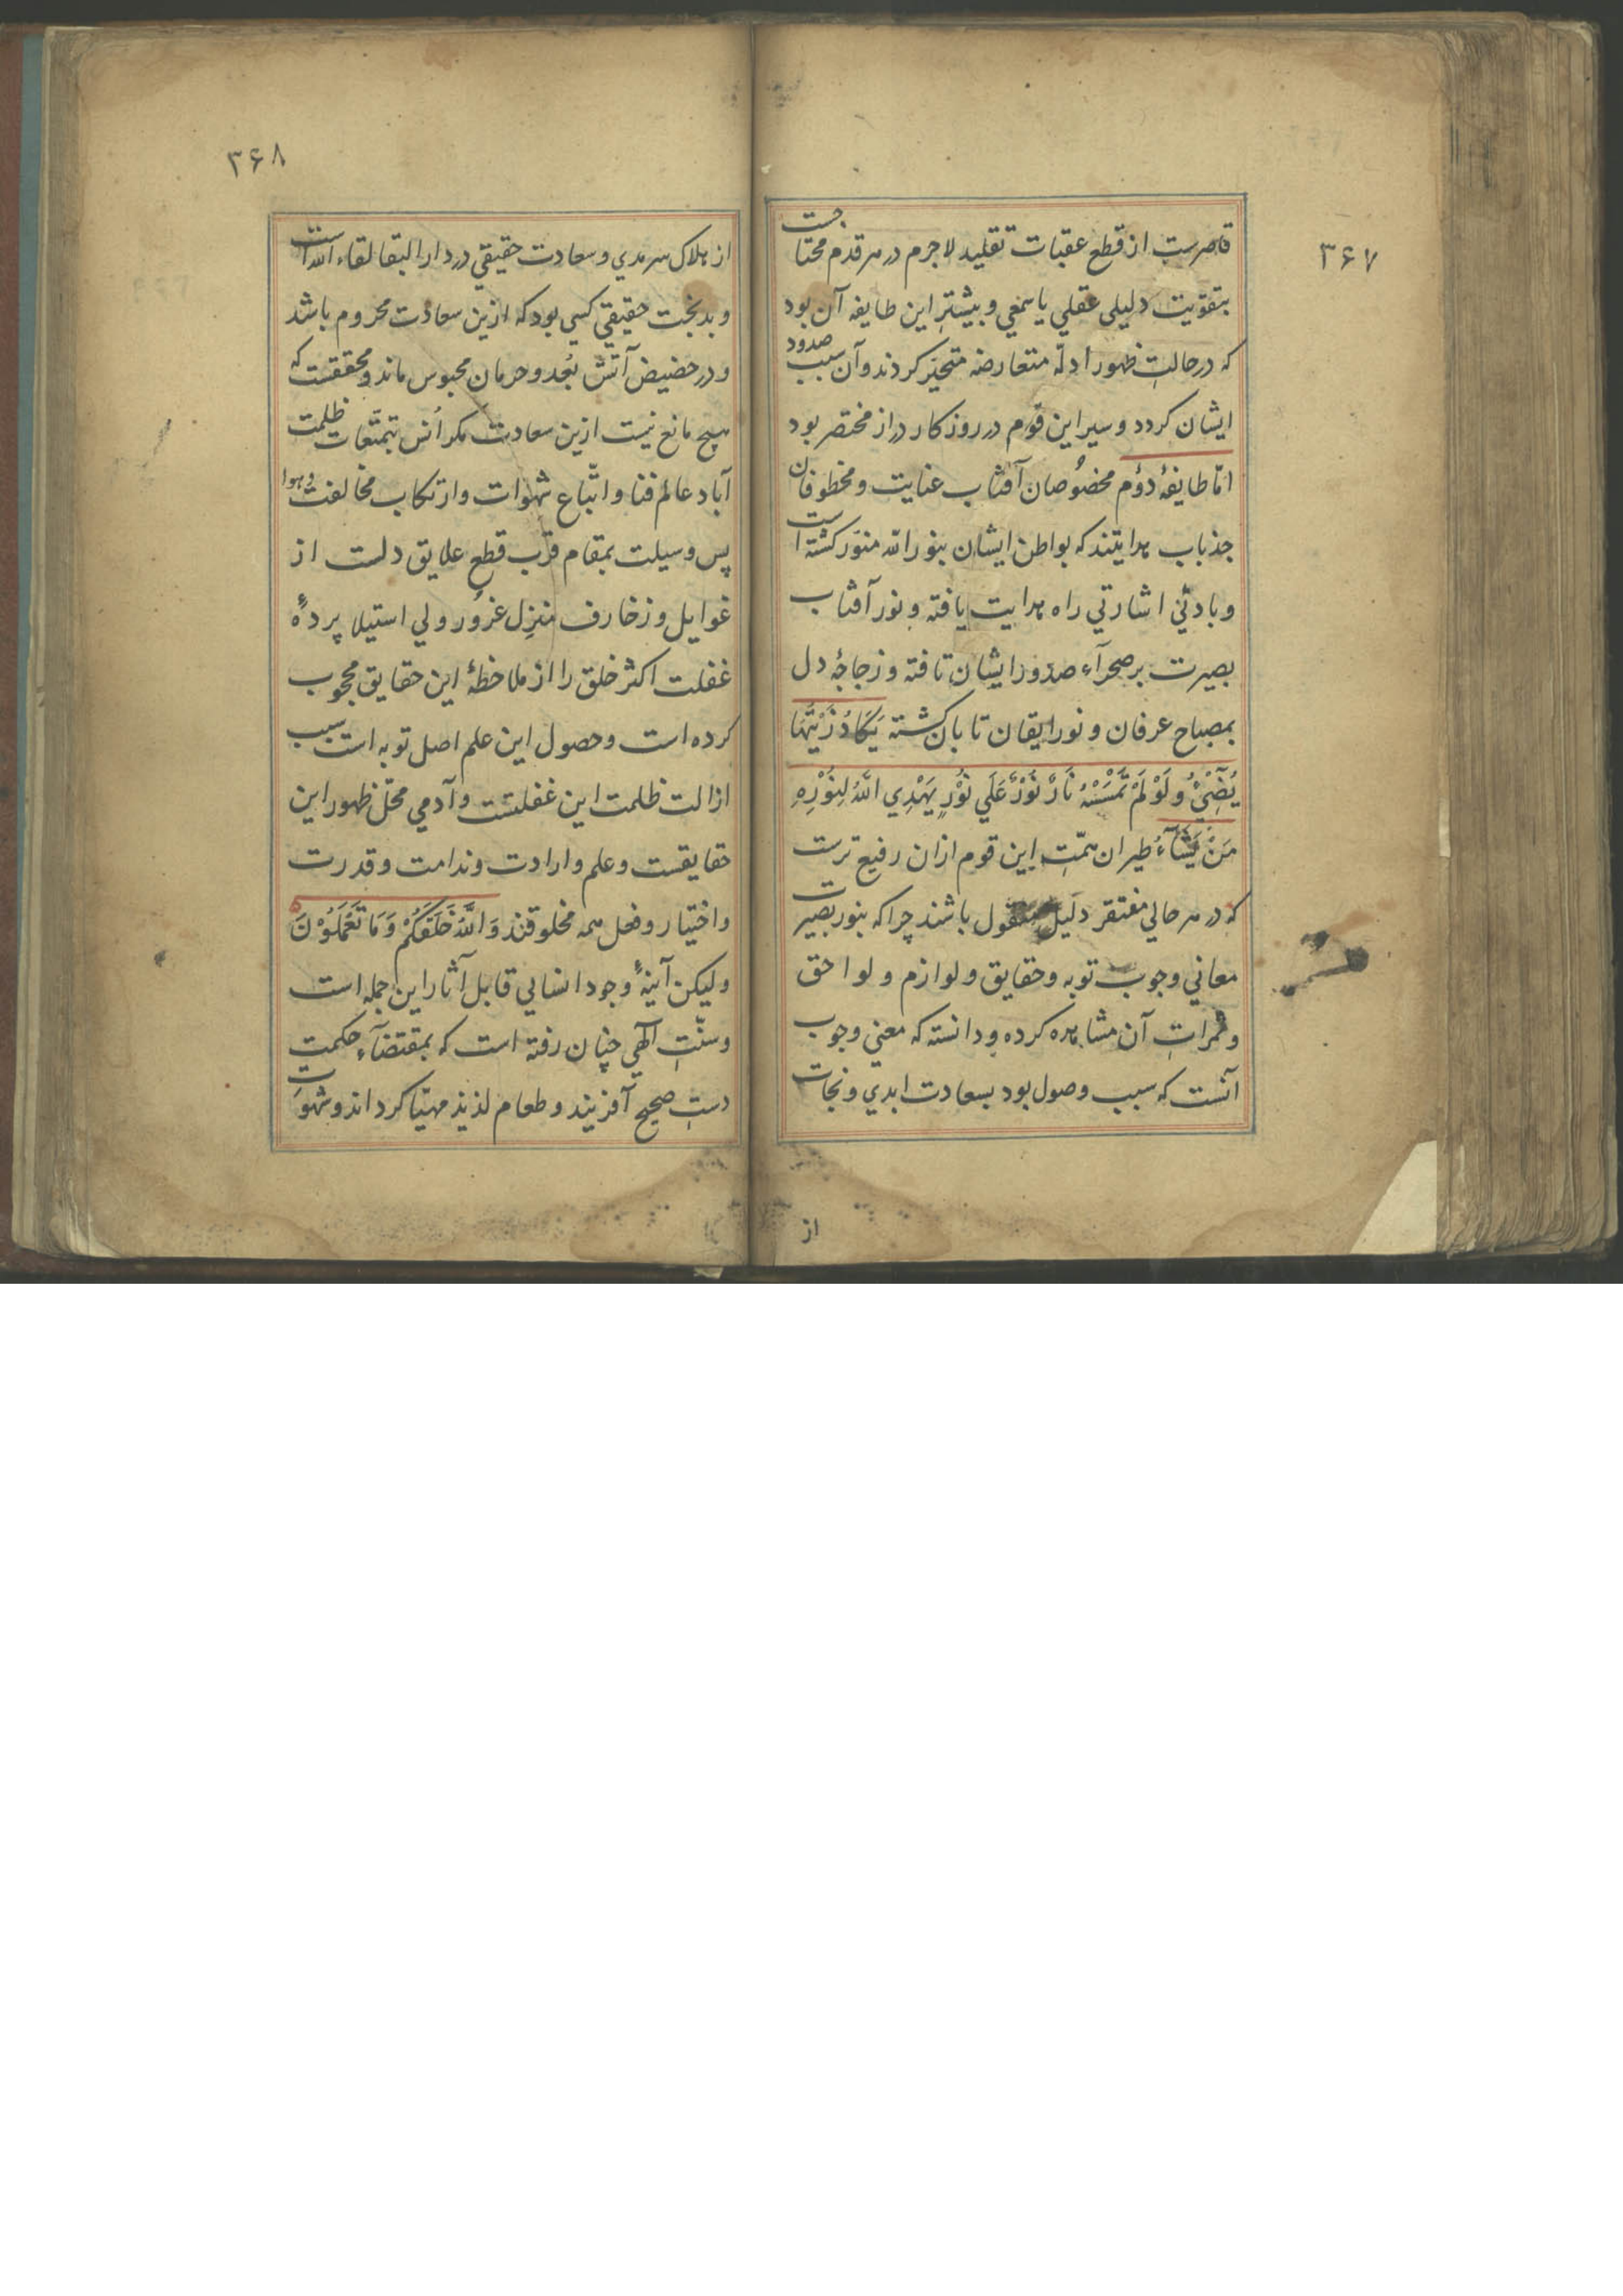 ۳۶۷
قاصرست از قطع عقبات تقلید لاجرم در هر قدم محتاجست
بتقویت دلیلی عقلي یا سمعي و بیشتر این طایفه آن بود
که در حالت ظهور ادلّه متعارضه متحیّر کردند و آن سبب صدود
ایشان کردد و سیر این قوم در روزکار دراز مختصر بود
امّا طایفهٔ دوُم مخصُوصان آفتاب عنایت و مخطوفان
جذبات هدایتند که بواطن ایشان بنور الله منوّر کشته است
و بادنيٰ اشارتي راه هدایت یافته و نور آفتاب
بصیرت بر صحرآء صدور ایشان تافته و زجاجهٔ دل
بمصباح عرفان و نور ایقان تابان کشته یَکَادُ زَیْتُهَا
یُضِيْٓءُ وَلَوْ لَمْ تَمْسَسْهُ نَارٌ نُوْرٌ عَلَي نُوْرٍ یَهْدِي اللّٰهُ لِنُوْرِهِ
مَنْ یَشَآءُ طیران همّتِ این قوم ازان رفیع ترست
که در هر حالي مفتقر دلیل منقول باشند چرا که بنور بصیرت
معاني وجوب توبه و حقایق و لوازم و لواحق
و ثمراتِ آن مشاهده کرده و دانسته که معنی وجوب
آنست که سبب وصول بود بسعادت ابدي و نجات
از
۳۶۸
از هلاک سرمدي و سعادت حقیقي در دار البقا لقاء الله است
و بدبخت حقیقي کسي بود که ازین سعادت محروم باشد
و در حضیض آتش بُعد و حرمان محبوس ماند و محققست که
هیچ مانع نیست ازین سعادت مکر اُنس بتمتّعات ظلمت
آباد عالم فنا و اتّباع شهوات و ارتکاب مخالفت و هوا
پس وسیلت بمقام قرب قطع علایق دلست از
غوایل و زخارف منزل غرُور ولي استیلا پردهٔ
غفلت اکثر خلق را از ملاحظهٔ این حقایق محجوب
کرده است و حصول این علم اصل توبه است سبب
ازالت ظلمت این غفلتست و آدمي محلّ ظهور این
حقایقست و علم و ارادت و ندامت و قدرت
و اختیار و فعل همه مخلوقند وَاللّٰهُ خَلَقَکُمْ وَمَا تَعْمَلُوْنَ
ولیکن آینهٔ وجود انساني قابل آثار این جمله است
و سنّتِ الٓهي چنان رفته است که بمقتضآءِ حکمت
دستِ صحیح آفریند و طعام لذیذ مهیّا کرداند و شهوت